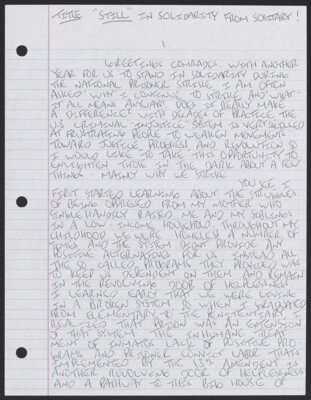 TITLE "STILL" IN SOLIDARITY FROM SOLITARY!
1
GREETINGS COMRADES. WITH ANOTHER
YEAR FOR US TO STAND IN SOLIDARITY DURING
THE NATIONAL PRISONER STRIKE I AM OFTEN
ASKED WHY I CONTINUE TO STRIKE AND WHAT
IT ALL MEANS ANYWAY. DOES IT REALLY MAKE
A DIFFERENCE? WITH DECADES OF PRACTICE THE
US CRIMINAL INJUSTICE SYSTEM IS VERY SKILLED
AT FRUSTRATING PEOPLE TO WEAKEN MOVEMENTS
TOWARD JUSTICE, PROGRESS AND REVOLUTION SO
I WOULD LIKE TO TAKE THIS OPPORTUNITY TO
ENLIGHTEN THOSE IN THE DARK ABOUT A FEW
THINGS - MAINLY WHY WE STRIKE.
YOU SEE I
FIRST STARTED LEARNING ABOUT THE STRUGGLES
OF BEING OPPRESSED FROM MY MOTHER WHO
SINGLE HANDLY RAISED ME AND MY SIBLINGS
IN A LOW-INCOME HOUSEHOLD. THROUGHOUT MY
CHILDHOOD WE WERE HOMELESS A NUMBER OF
TIMES AND THE SYSTEM DIDN'T PROVIDE ANY
POSITIVE ALTERNATIVES FOR US. INSTEAD ALL
THE SO CALLED PROGRAMS THEY PROVIDE WAS
TO KEEP US DEPENDENT ON THEM AND REMAIN
IN THE REVOLVING DOOR OF HELPLESSNESS.
I LEARNED EARLY THAT WE WERE LIVING
IN A BROKEN SYSTEM SO WHEN I GRADUATED
FROM ELEMENTARY TO THE PENITENTIARY I
REALIZED THAT PRISON WAS AN EXTENSION
OF THAT SYSTEM. THE INHUMANE TREAT-
MENT OF INMATES LACK OF POSITIVE PRO-
GRAMS AND PRISONER CONVICT LABOR THAT'S
IMPLEMENTED BY THE 13'S AMENDMENT IS
ANOTHER REVOLVING DOOR OF HELPLESSNESS
AND A PATHWAY TO THIS BIG HOUSE OF